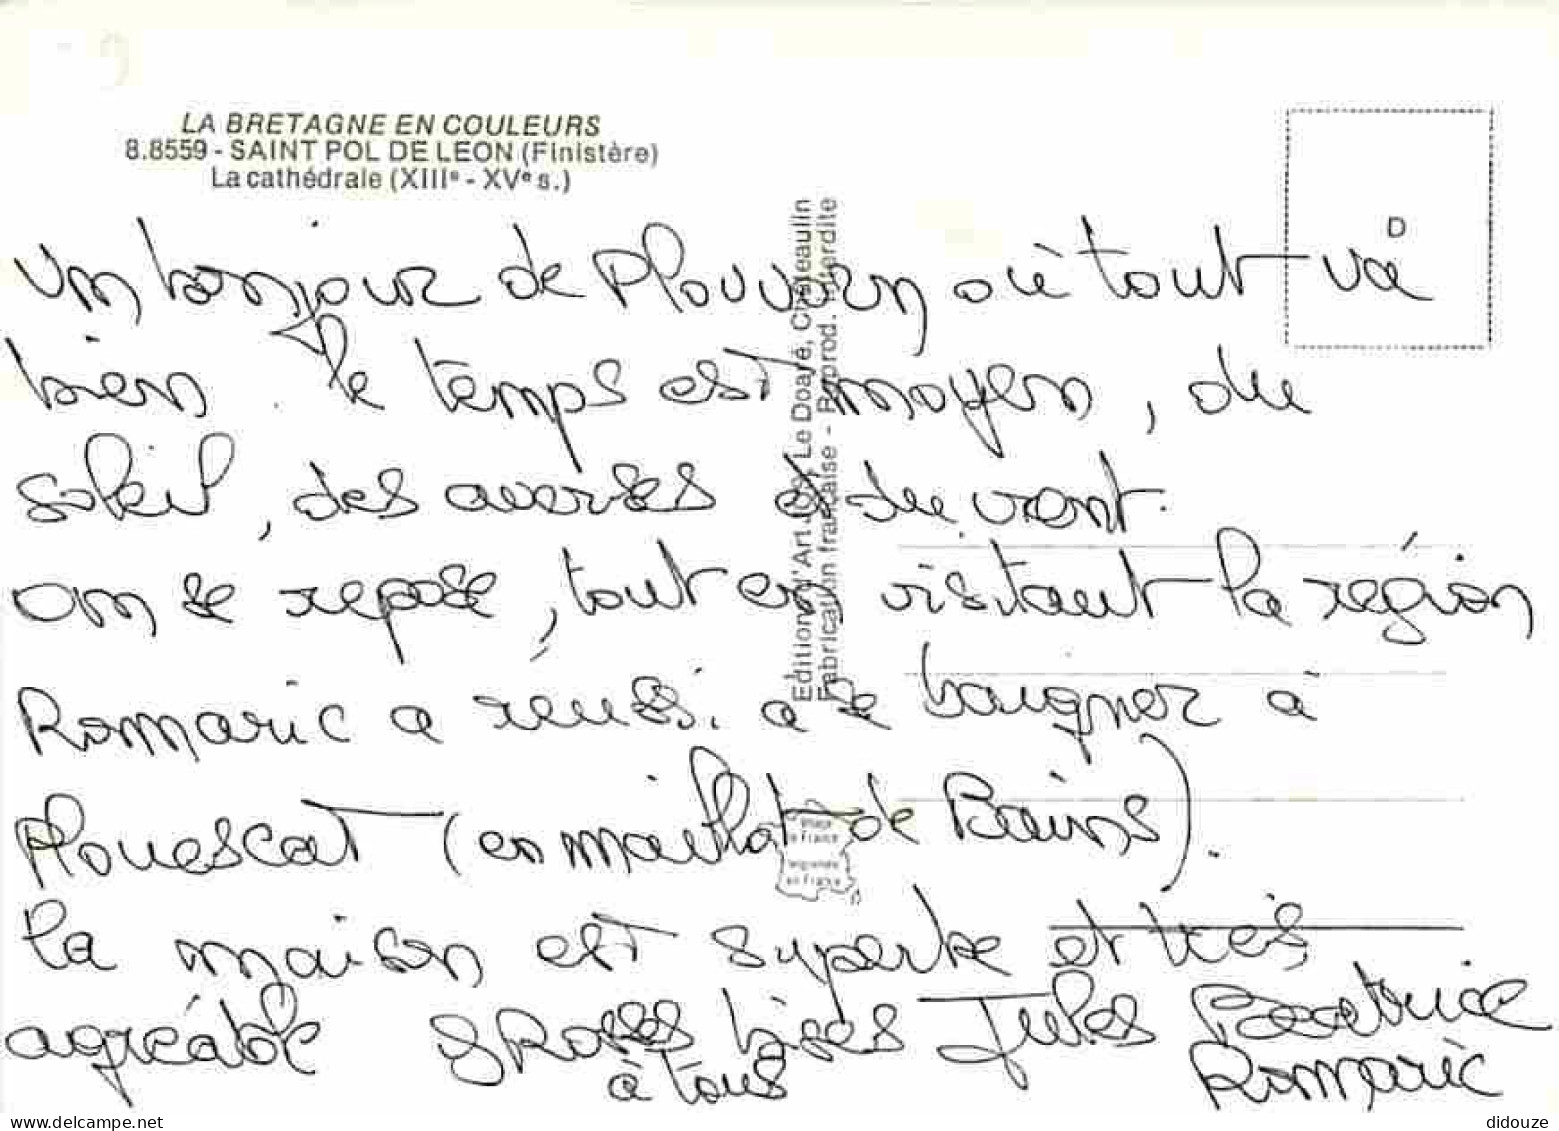 LA BRETAGNE EN COULEURS
8.8559 - SAINT POL DE LEON (Finistère)
La cathédrale (XIIIe - XVe s.)
D
Un bonjour de Plouvorn où tout va
bien. le temps est moyen, du
soleil, des averses et du vent.
on se repose, tout en visitant la région
Romaric a réussi a se baigner à
Plouescat (en maillot de Bains).
la maison est superbe et très
agréable grosses bises Jules Beatrice
à tous Romaric
Editions d'Art Jos Le Doaré, Châteaulin
Fabrication française - Reprod. interdite
image
de France
imprimée
en France
delcampe.net
didouze